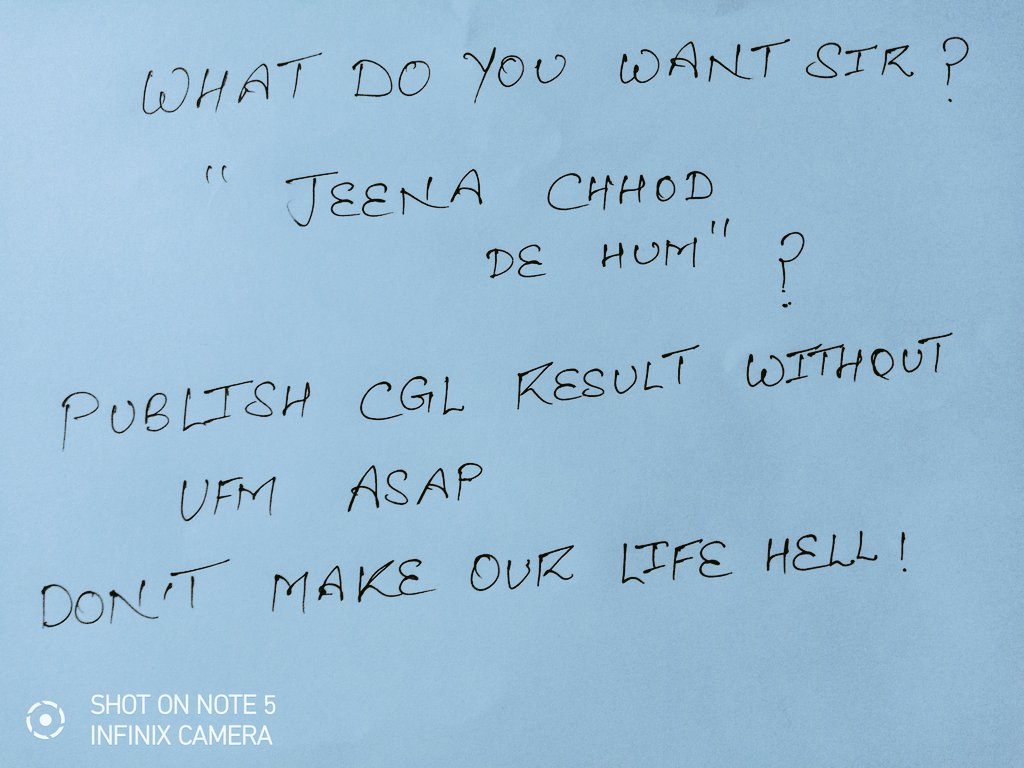 WHAT DO YOU WANT SIR ?
" JEENA CHHOD
DE HUM" ?
PUBLISH CGL RESULT WITHOUT
UFM ASAP
DON'T MAKE OUR LIFE HELL !
SHOT ON NOTE 5
INFINIX CAMERA